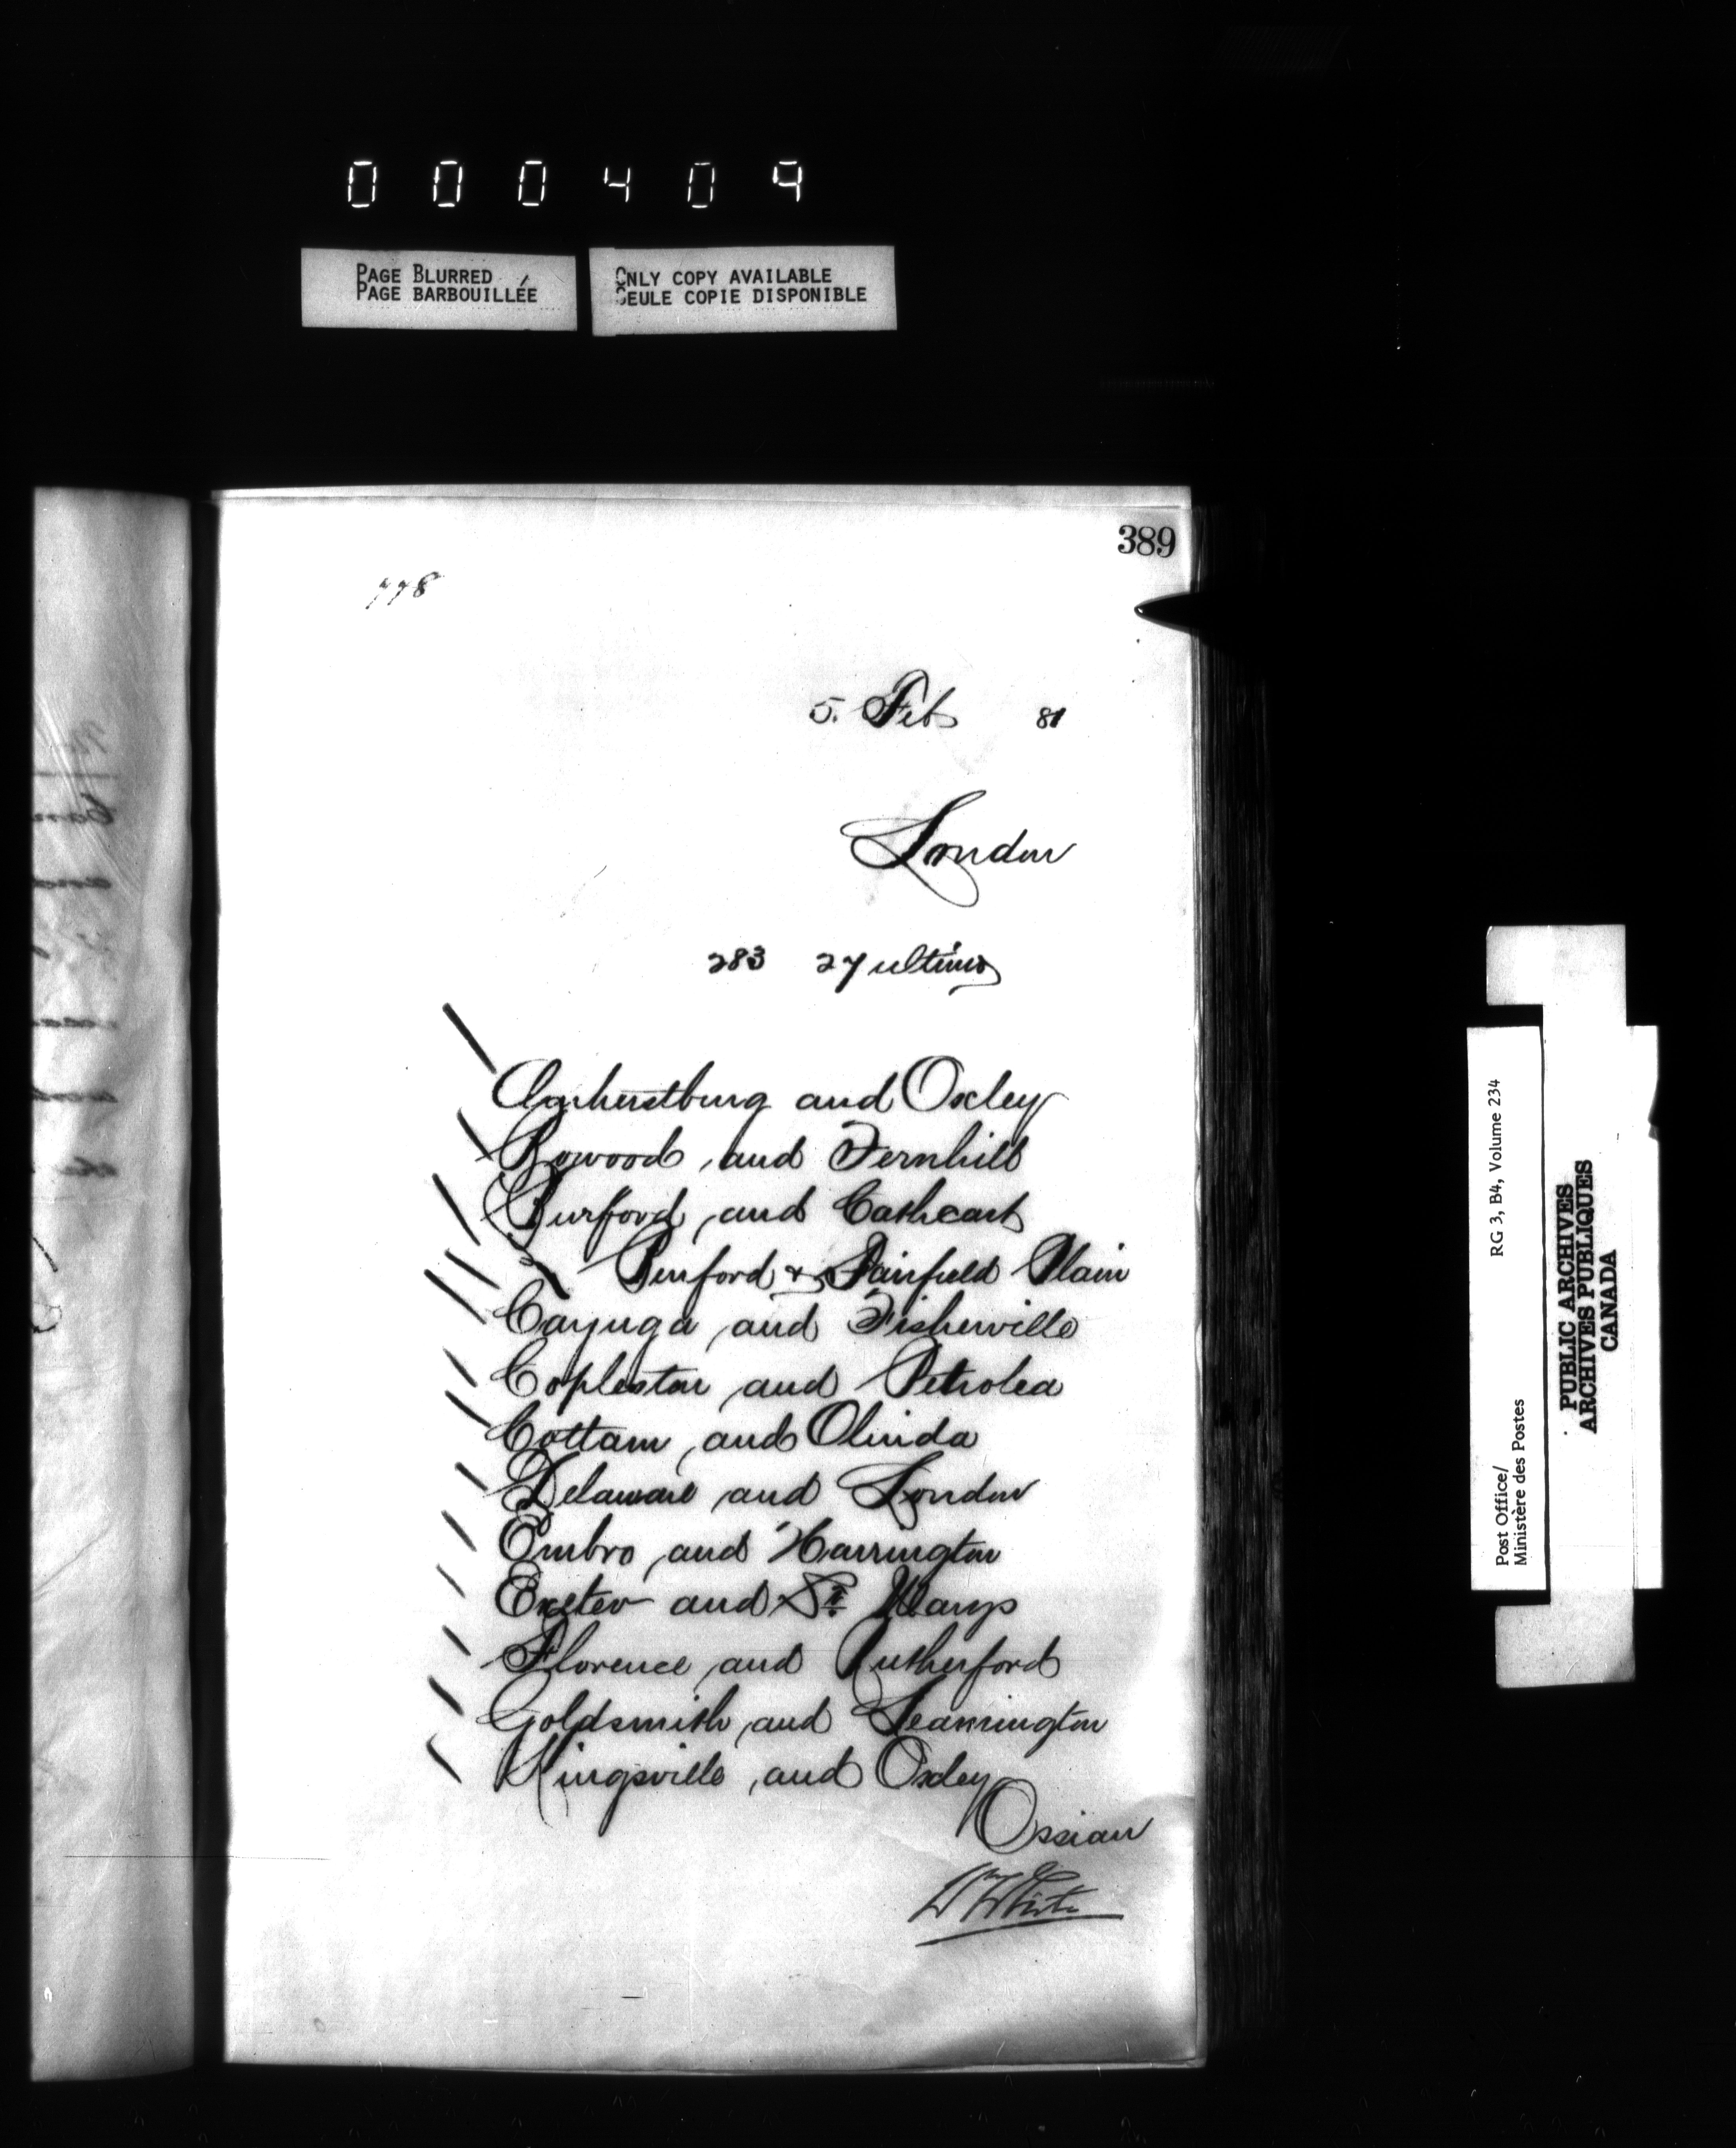 000409
PAGE BLURRED
PAGE BARBOUILLÉE
ONLY COPY AVAILABLE
SEULE COPIE DISPONIBLE
389
778
5. Feb 81
London
283 27 ultimo
Amherstburg and Oxley
Bowood and Fernhill
Burford and Cathcart
Burford & Fairfield Plain
Cayuga and Fisherville
Copleston and Petrolea
Cottam and Olinda
Delaware and London
Embro and Harrington
Exeter and St. Marys
Florence and Rutherford
Goldsmith and Leamington
Kingsville and Oxley
Ossian
Wm White
Post Office/
Ministère des Postes
RG 3, B4, Volume 234
PUBLIC ARCHIVES
ARCHIVES PUBLIQUES
CANADA